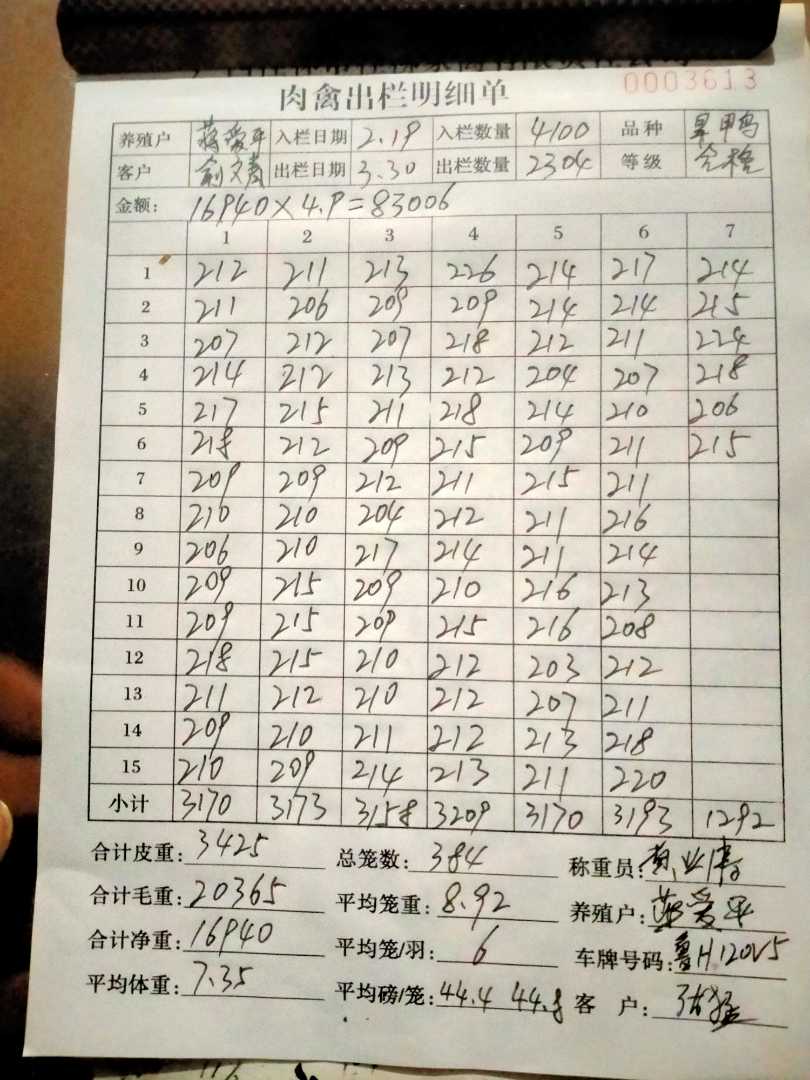 0003613
肉禽出栏明细单
养殖户 蒋爱平 入栏日期 2.19 入栏数量 4100 品种
客户 出栏日期 3.30 出栏数量 2304 等级 合格
金额: 16940×4.9=83006
1 2 3 4 5 6 7
1 212 211 213 226 214 217 214
2 211 206 209 209 214 214 215
3 207 212 207 218 212 211 224
4 214 212 213 212 204 207 218
5 217 215 211 218 214 210 206
6 218 212 209 215 209 211 215
7 209 209 212 211 215 211
8 210 210 204 212 211 216
9 206 210 217 214 211 214
10 209 215 209 210 216 213
11 209 215 209 215 216 208
12 218 215 210 212 203 212
13 211 212 210 212 207 211
14 209 210 211 212 213 218
15 210 209 214 213 211 220
小计 3170 3173 3158 3209 3170 3193 1292
合计皮重: 3425 总笼数: 384 称重员:
合计毛重: 20365 平均笼重: 8.92 养殖户: 蒋爱平
合计净重: 16940 平均笼/羽: 6 车牌号码: 鲁H120V5
平均体重: 7.35 平均磅/笼: 44.4 44.8 客 户: 张猛